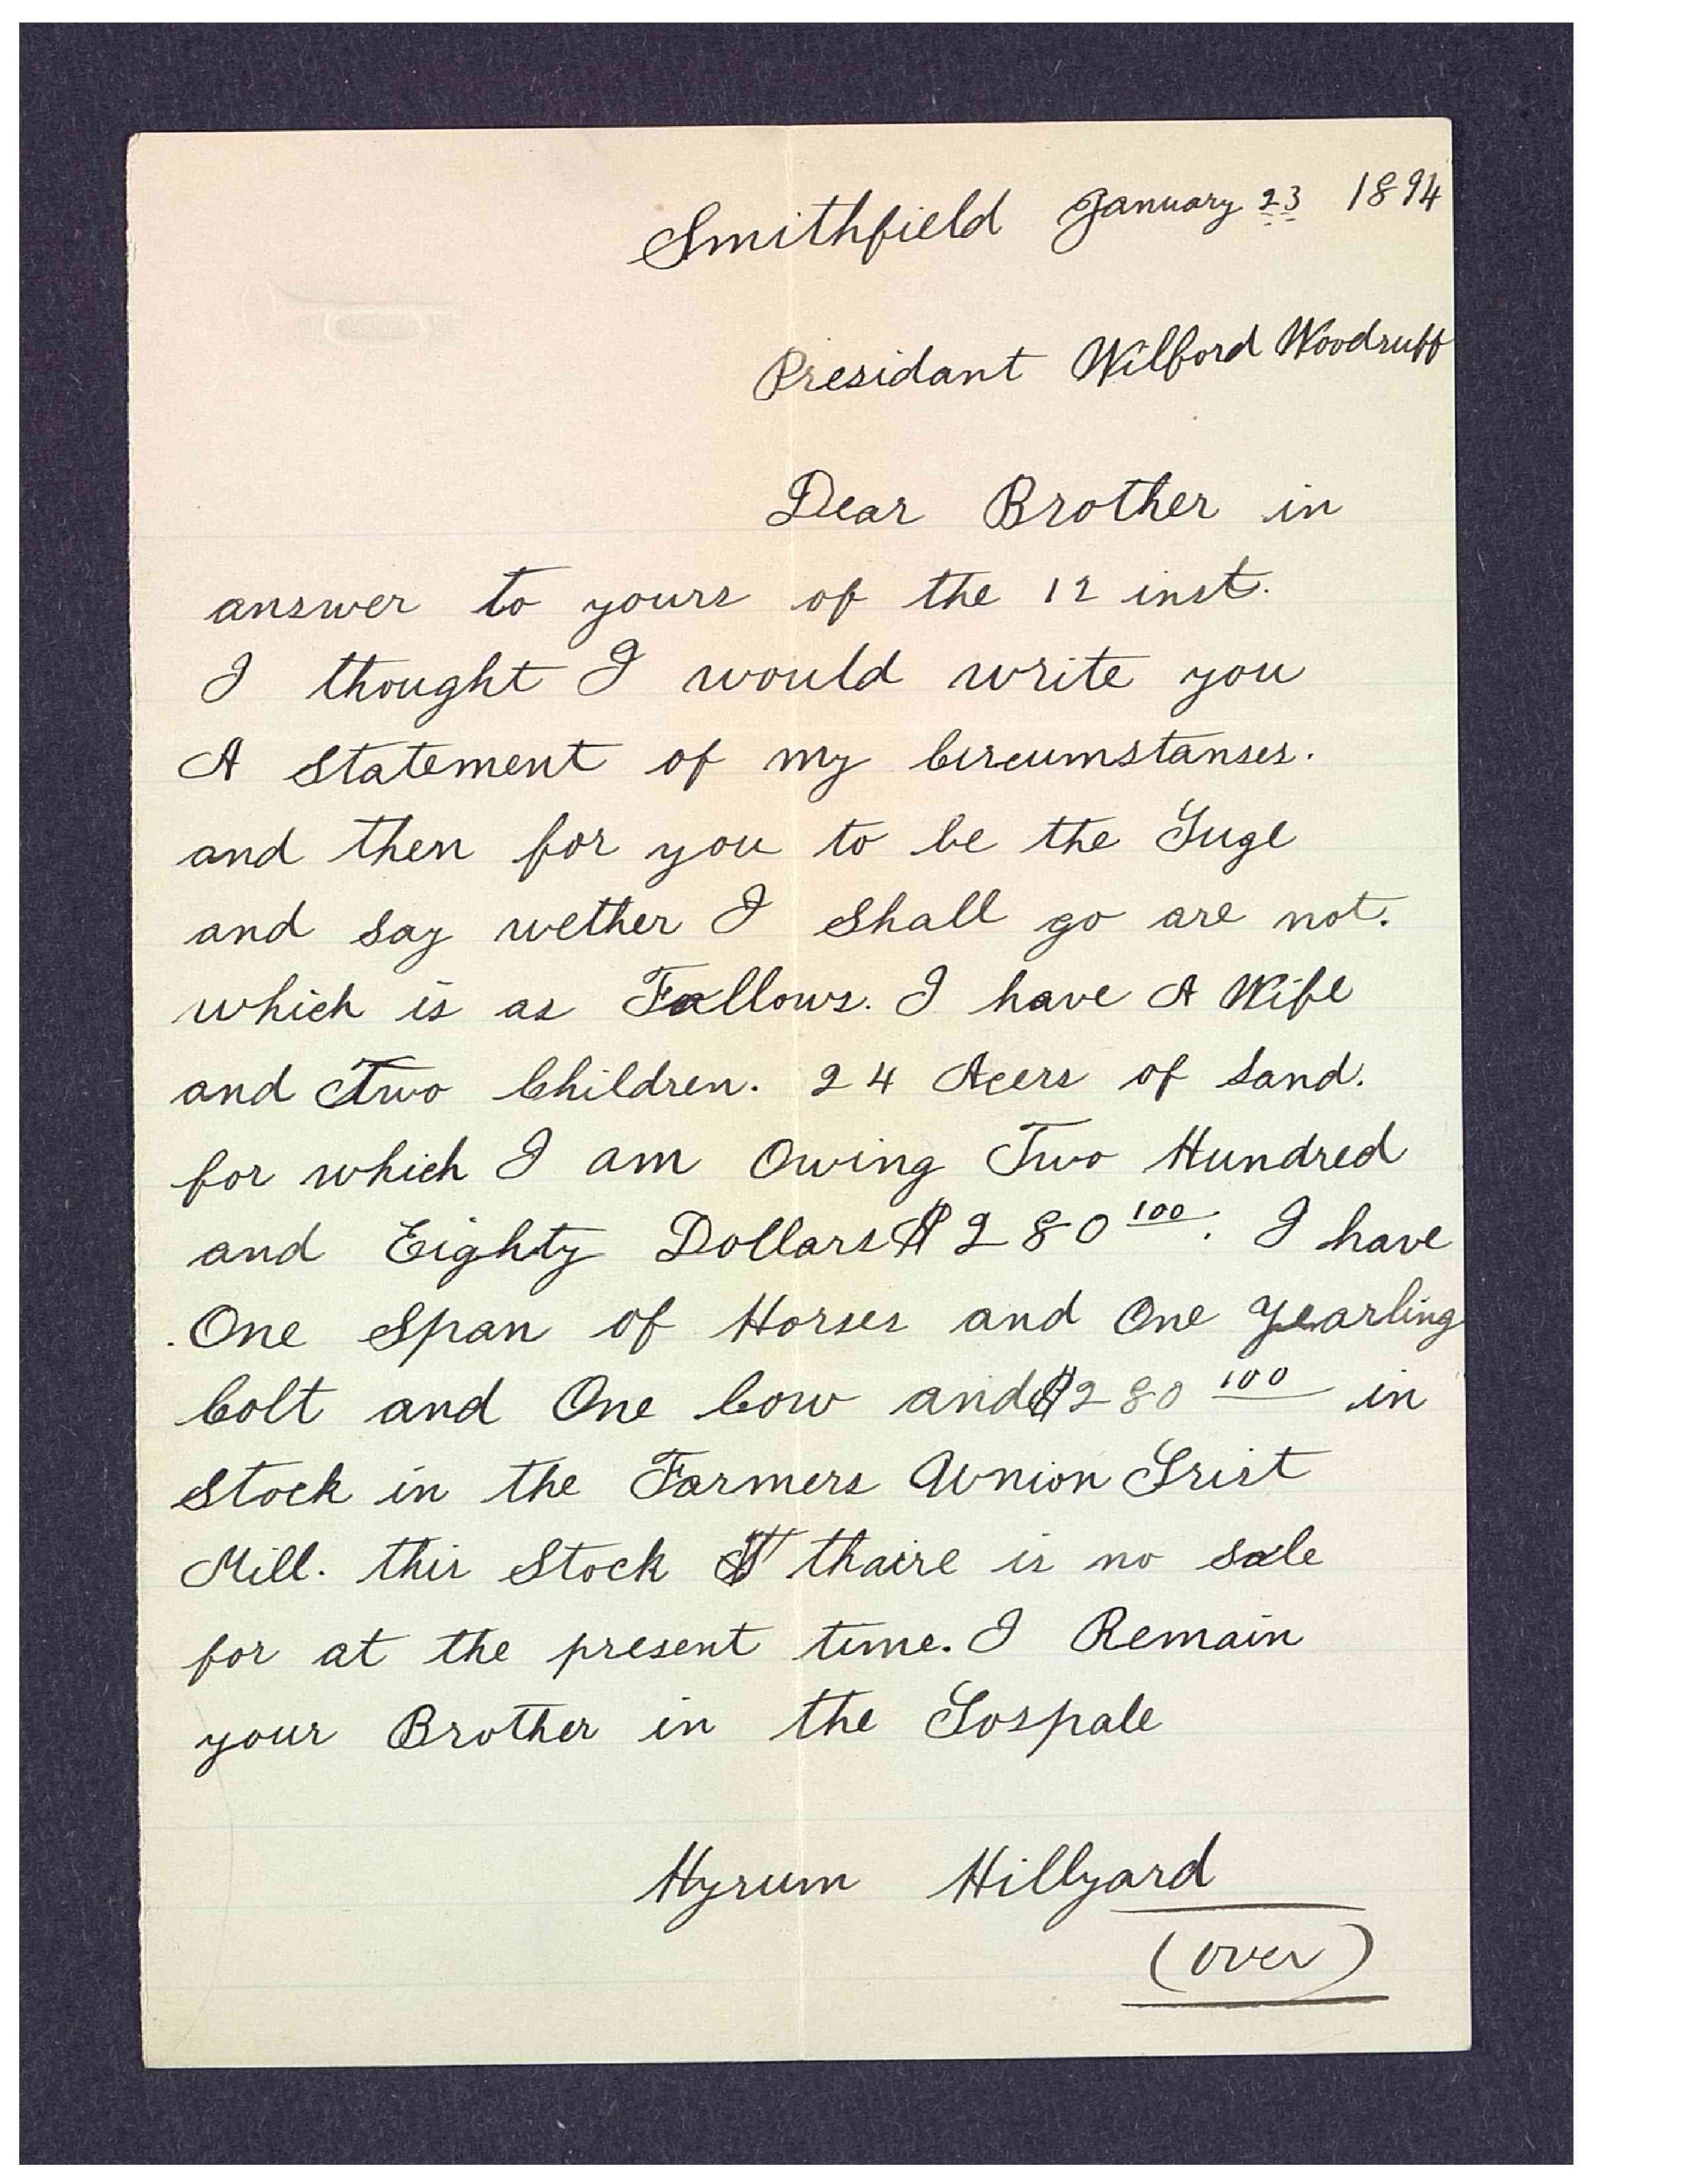 Smithfield January 23 1894
Presidant Wilford Woodruff
Dear Brother in
answer to yours of the 12 inst.
I thought I would write you
A Statement of my Circumstanses.
and then for you to be the Juge
and say wether I Shall go are not.
which is as Fallows. I have A Wife
and Two Children. 24 Acers of Land.
for which I am Owing Two Hundred
and Eighty Dollars $280 100. I have
One Span of Horses and One Yearling
Colt and One Cow and $280 100 in
Stock in the Farmers Union Grist
Mill. this Stock thaire is no sale
for at the present time. I Remain
your Brother in the Gospale
Hyrum Hillyard
(over)